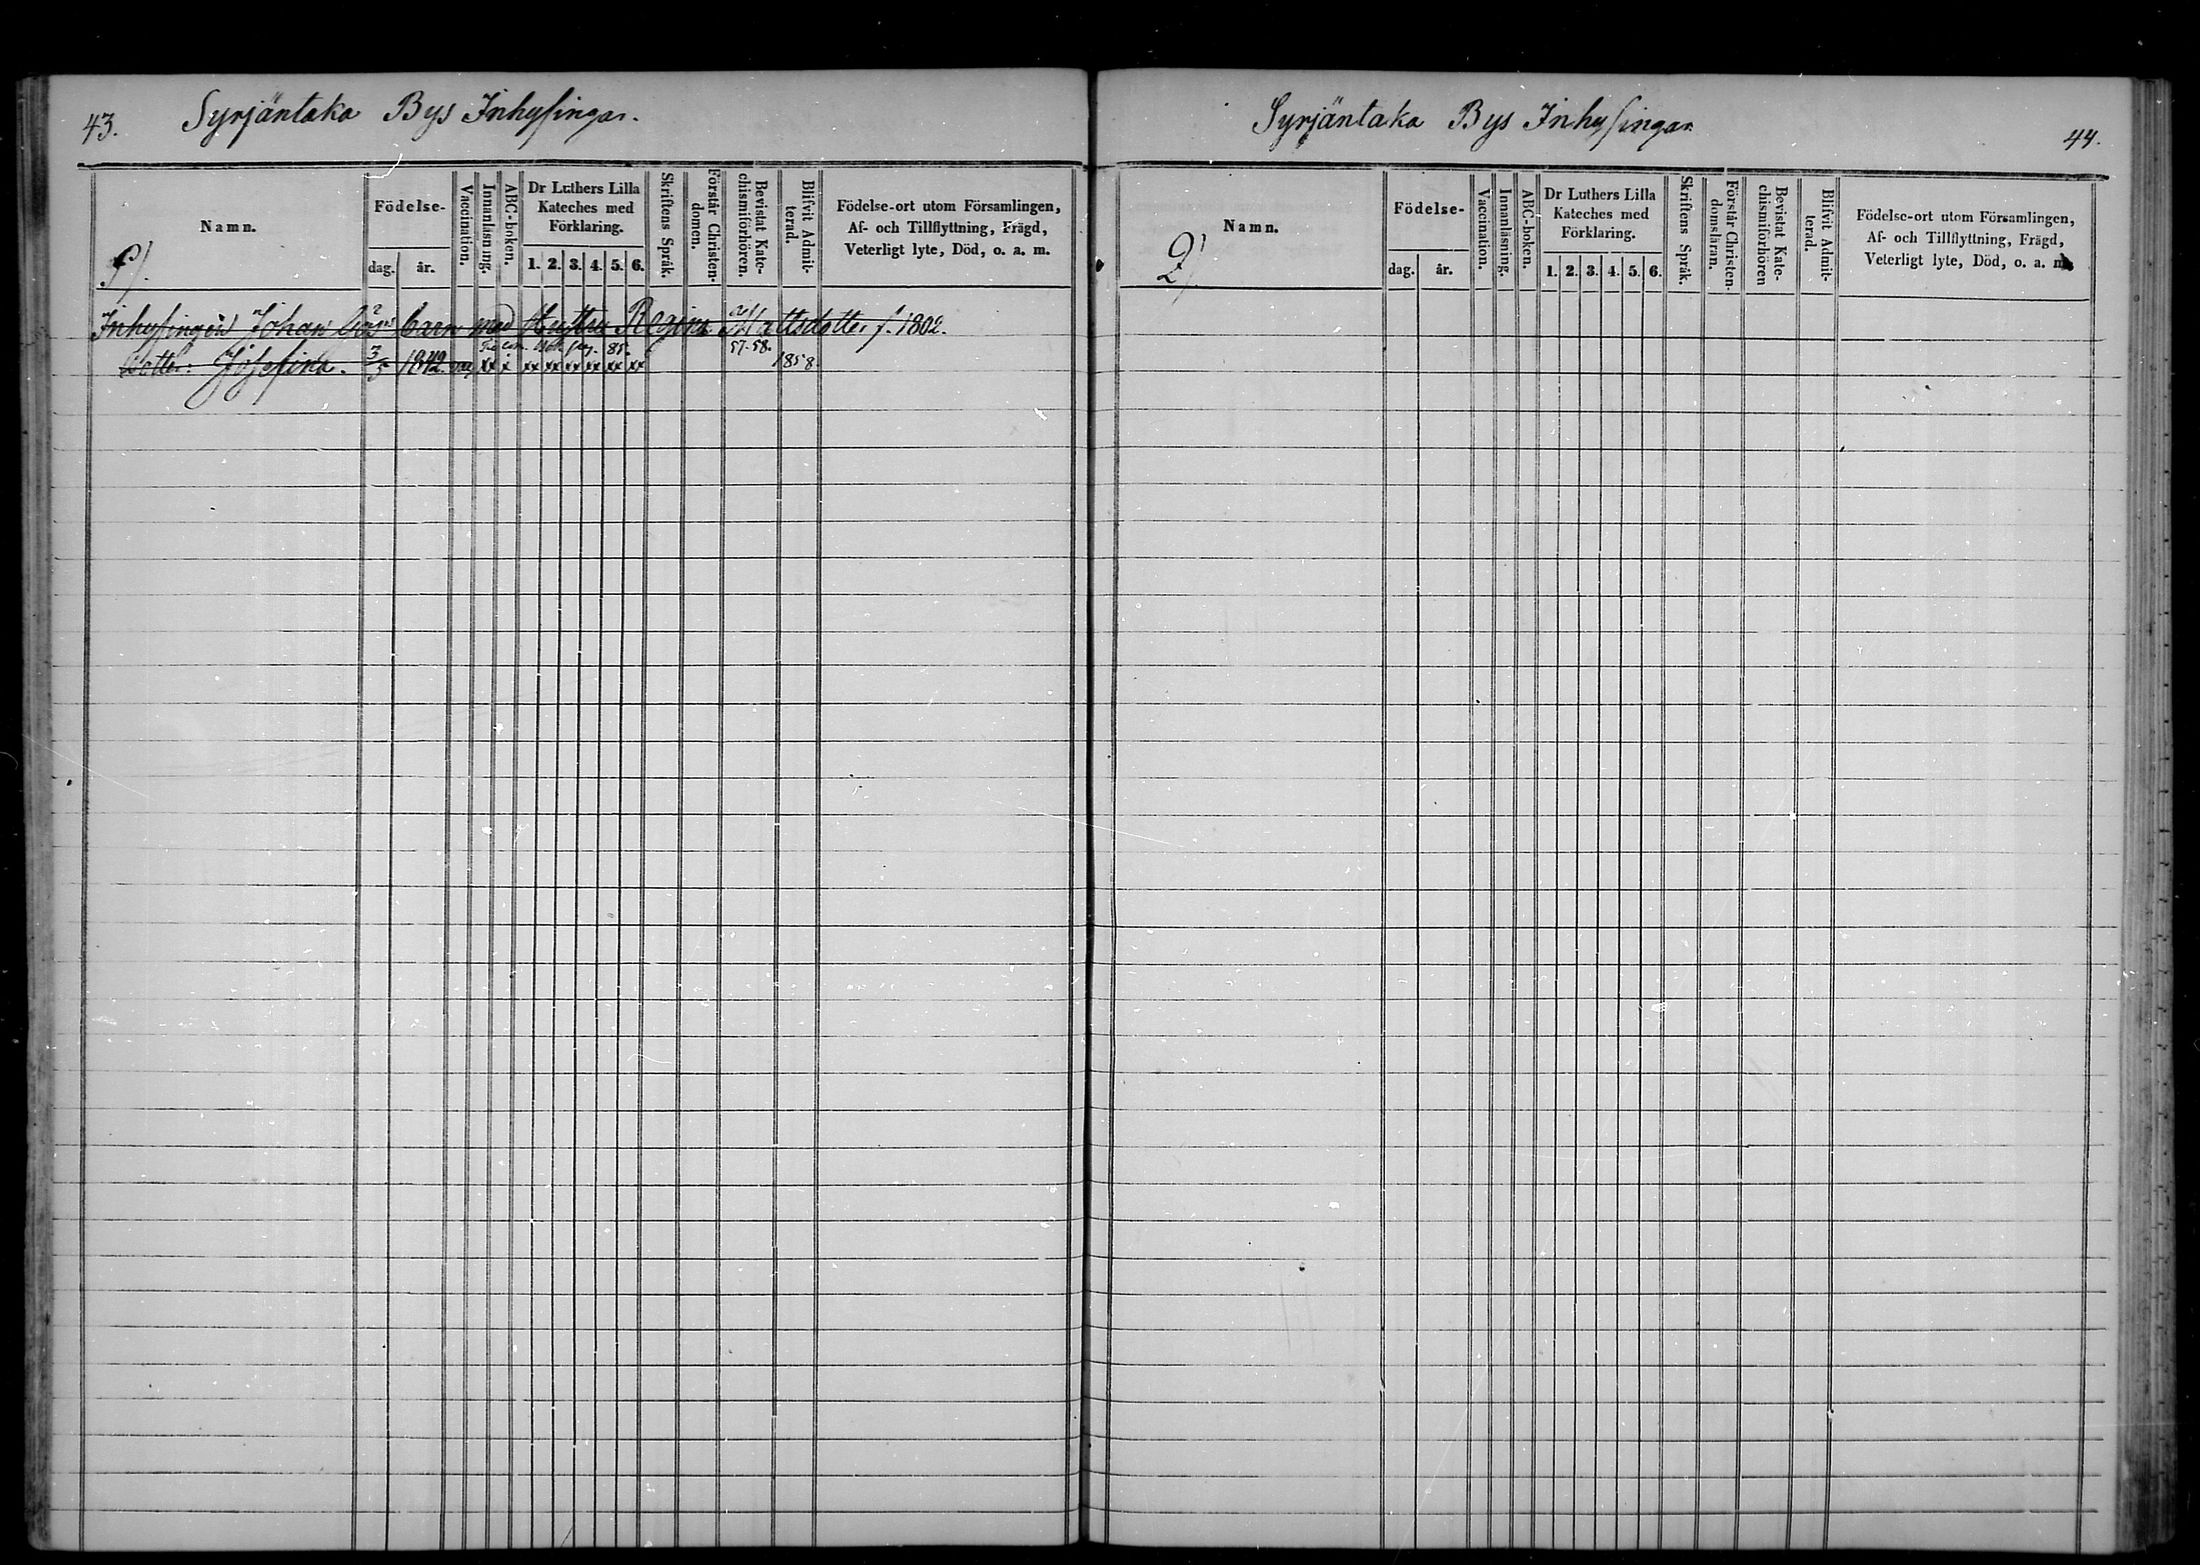 43. Syrjäntaka Bys Inhysingar.
Namn.
Födelse-
dag. år.
Vaccination.
Innanläsning.
ABC-boken.
Dr Luthers Lilla
Kateches med
Förklaring.
1. 2. 3. 4. 5. 6.
Skriftens Språk.
Förstår Christen-
domen.
Bevistat Kate-
chismiförhören.
Blifvit Admit-
terad.
Födelse-ort utom Församlingen,
Af- och Tillflyttning, Frägd,
Veterligt lyte, Död, o. a. m.
Inhysingen Johan barn med Hustru Regina Mattsdotter f. 1802.
pag. 85. 57.58.
Dotter: Josefina. 3/5 1842. xx x xx xx xx xx xx xx 1858.
Syrjäntaka Bys Inhysingar. 44.
Namn.
2)
Födelse-
dag. år.
Vaccination.
Innanläsning.
ABC-boken.
Dr Luthers Lilla
Kateches med
Förklaring.
1. 2. 3. 4. 5. 6.
Skriftens Språk.
Förstår Christen-
domsläran.
Bevistat Kate-
chismiförhören
Blifvit Admit-
terad.
Födelse-ort utom Församlingen,
Af- och Tillflyttning, Frägd,
Veterligt lyte, Död, o. a. m.